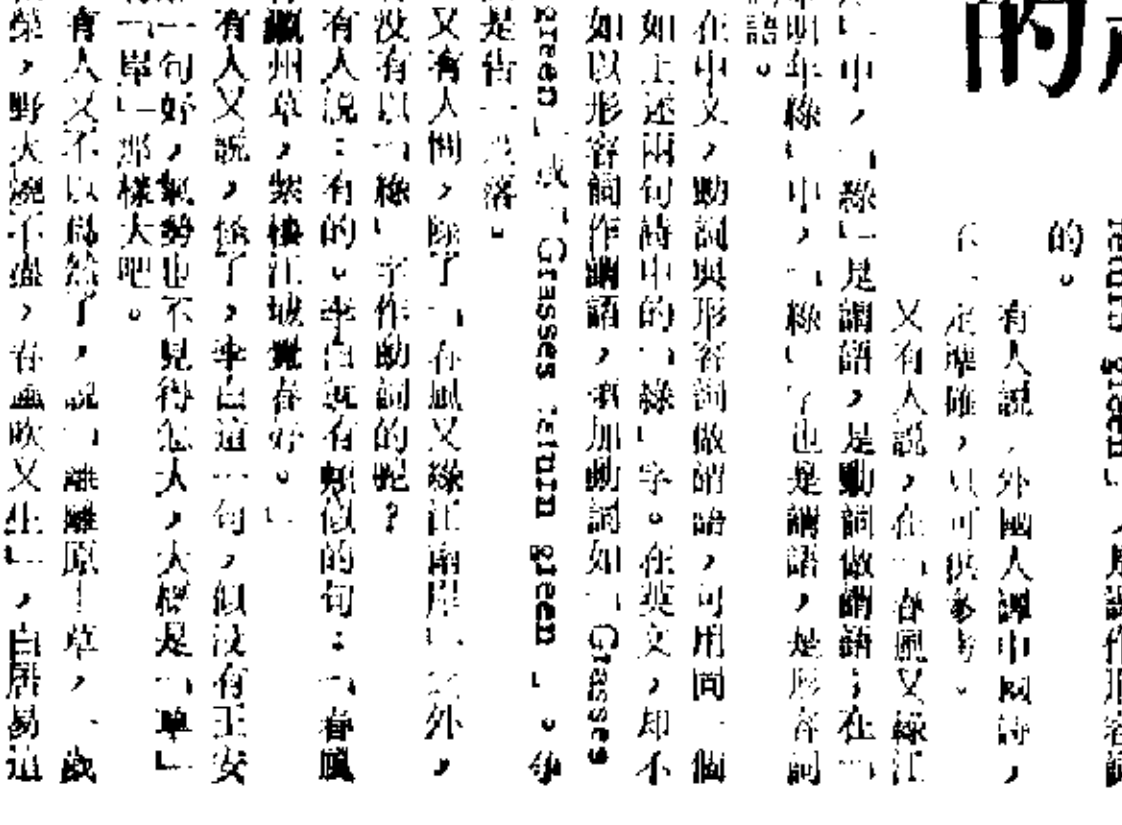 的
return green」,用謂作形容詞
的。
有人説,外國人譯中國詩,
不一定準確,只可供參考。
又有人説,在「春風又綠江
」中,「綠」是謂語,是動詞做謂語;在「
明年綠」中,「綠」了也是謂語,是形容詞
語。
在中文,動詞與形容詞做謂語,可用同一個
如上述兩句詩中的「綠」字。在英文,却不
如以形容詞作謂語,須加動詞如「Grasses
green」或「Grasses return green」。爭
是告一段落。
又有人問,除了「春風又綠江南岸」之外,
没有以「綠」字作動詞的呢?
有人説:有的。李白就有類似的句:「春風
州草,紫樓江城覺春好。」
有人又説,怪了,李白這一句,似没有王安
一句好,氣勢也不見得怎大,大概是「草」
「岸」那樣大吧。
有人又不以爲然了,説「離離原上草,一歲
榮,野火燒不盡,春風吹又生」,白居易這